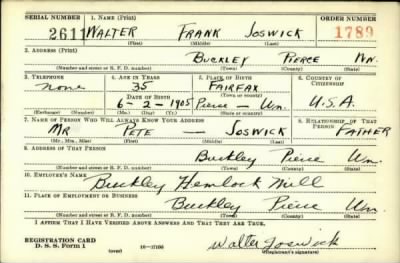 SERIAL NUMBER 1. NAME (Print) ORDER NUMBER
2611 WALTER FRANK JOSWICK 1789
(First) (Middle) (Last)
2. ADDRESS (Print)
BUCKLEY PIERCE WN.
(Number and street or R. F. D. number) (Town) (County) (State)
3. TELEPHONE 4. AGE IN YEARS 5. PLACE OF BIRTH 6. COUNTRY OF CITIZENSHIP
none 35 FAIRFAX
DATE OF BIRTH (Town or county)
6-2-1905 Pierce - Wn. U.S.A.
(Exchange) (Number) (Mo.) (Day) (Yr.) (State or country)
7. NAME OF PERSON WHO WILL ALWAYS KNOW YOUR ADDRESS 8. RELATIONSHIP OF THAT PERSON
MR PETE — JOSWICK FATHER
(Mr., Mrs., Miss) (First) (Middle) (Last)
9. ADDRESS OF THAT PERSON
Buckley Pierce Wn.
(Number and street or R. F. D. number) (Town) (County) (State)
10. EMPLOYER'S NAME
Buckley Hemlock Mill
11. PLACE OF EMPLOYMENT OR BUSINESS
Buckley Pierce Wn.
(Number and street or R. F. D. number) (Town) (County) (State)
I AFFIRM THAT I HAVE VERIFIED ABOVE ANSWERS AND THAT THEY ARE TRUE.
REGISTRATION CARD
D. S. S. Form 1 (over) 16-17105 Walter Joswick
(Registrant's signature)